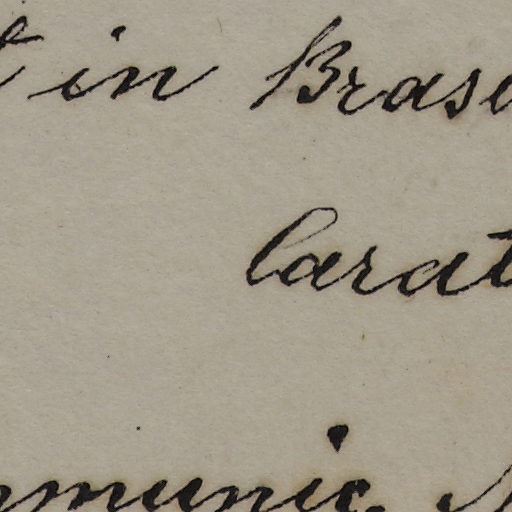 t in Brasi
Carat
mmunic.